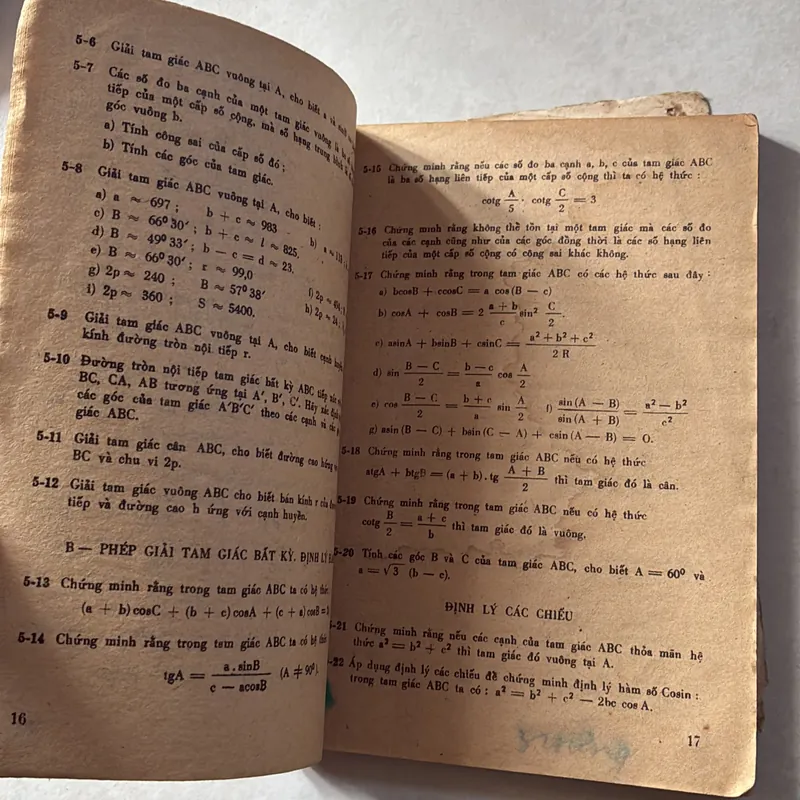 5-6 Giải tam giác ABC vuông tại A, cho biết a và
5-7 Các số đo ba cạnh của một tam giác vuông là
tiếp của một cấp số cộng, mà số hạng trung bình
góc vuông b.
a) Tính công sai của cấp số đó ;
b) Tính các góc của tam giác.
5-8 Giải tam giác ABC vuông tại A, cho biết :
a) a ≈ 697 ; b + c ≈ 983 b) a ≈
c) B ≈ 66º30′ ; b + c ≈ l ≈ 825.
d) B ≈ 49º33′ ; b − c = d ≈ 23.
e) B ≈ 66º30′ ; r ≈ 99,0 f) 2p ≈
g) 2p ≈ 240 ; B ≈ 57º38′ h) 2p ≈
i) 2p ≈ 360 ; S ≈ 5400.
5-9 Giải tam giác ABC vuông tại A, cho biết cạnh huyền
kính đường tròn nội tiếp r.
5-10 Đường tròn nội tiếp tam giác bất kỳ ABC tiếp xúc
BC, CA, AB tương ứng tại A′, B′, C′. Hãy xác định
các góc của tam giác A′B′C′ theo các cạnh và các
giác ABC.
5-11 Giải tam giác cân ABC, cho biết đường cao
BC và chu vi 2p.
5-12 Giải tam giác vuông ABC cho biết bán kính r của
tiếp và đường cao h ứng với cạnh huyền.
B — PHÉP GIẢI TAM GIÁC BẤT KỲ. ĐỊNH LÝ
5-13 Chứng minh rằng trong tam giác ABC ta có hệ thức
(a + b)cosC + (b + c)cosA + (c + a)cosB =
5-14 Chứng minh rằng trong tam giác ABC ta có hệ thức
tgA = a.sinB / (c − acosB) (A ≠ 90º).
16
5-15 Chứng minh rằng nếu các số đo ba cạnh a, b, c của tam giác ABC
là ba số hạng liên tiếp của một cấp số cộng thì ta có hệ thức :
cotg A/5 . cotg C/2 = 3
5-16 Chứng minh rằng không thể tồn tại một tam giác mà các số đo
của các cạnh cũng như của các góc đồng thời là các số hạng liên
tiếp của một cấp số cộng có công sai khác không.
5-17 Chứng minh rằng trong tam giác ABC có các hệ thức sau đây :
a) bcosB + ccosC = a cos (B − c)
b) cosA + cosB = 2 (a + b)/c sin² C/2.
c) asinA + bsinB + csinC = (a² + b² + c²)/2 R
d) sin (B − C)/2 = (b − c)/a cos A/2
e) cos (B − C)/2 = (b + c)/a sin A/2 f) sin (A − B)/sin (A + B) = (a² − b²)/c²
g) asin (B − C) + bsin (C − A) + csin (A − B) = O.
5-18 Chứng minh rằng trong tam giác ABC nếu có hệ thức
atgA + btgB = (a + b) . tg (A + B)/2 thì tam giác đó là cân.
5-19 Chứng minh rằng trong tam giác ABC nếu có hệ thức
cotg B/2 = (a + c)/b thì tam giác đó là vuông.
5-20 Tính các góc B và C của tam giác ABC, cho biết A = 60º và
a = √3 (b − c).
ĐỊNH LÝ CÁC CHIẾU
5-21 Chứng minh rằng nếu các cạnh của tam giác ABC thỏa mãn hệ
thức a² = b² + c² thì tam giác đó vuông tại A.
5-22 Áp dụng định lý các chiếu để chứng minh định lý hàm số Cosin :
trong tam giác ABC ta có : a² = b² + c² − 2bc cos A.
17